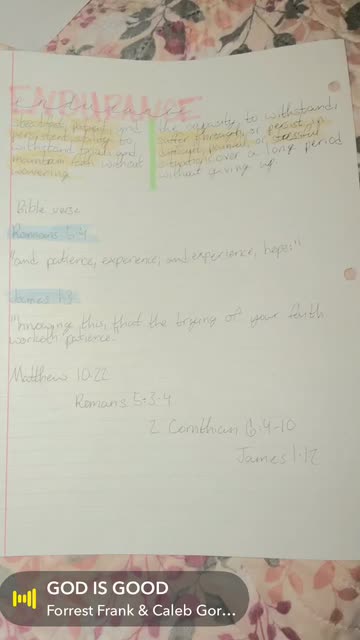 ENDURANCE
endurance
steadfast, patient, and
persistent ability to
withstand trials and
maintain faith without
wavering
the capacity to withstand,
suffer through, or persist in
painful, or stressful
situation over a long period
without giving up.
Bible verse
Romans 5:4
"and patience, experience, and experience, hope:"
James 1:3
"knowing this, that the trying of your faith
worketh patience.
Matthew 10:22
Romans 5:3-4
2 Corinthian 6:4-10
James 1:12
GOD IS GOOD
Forrest Frank & Caleb Gor...